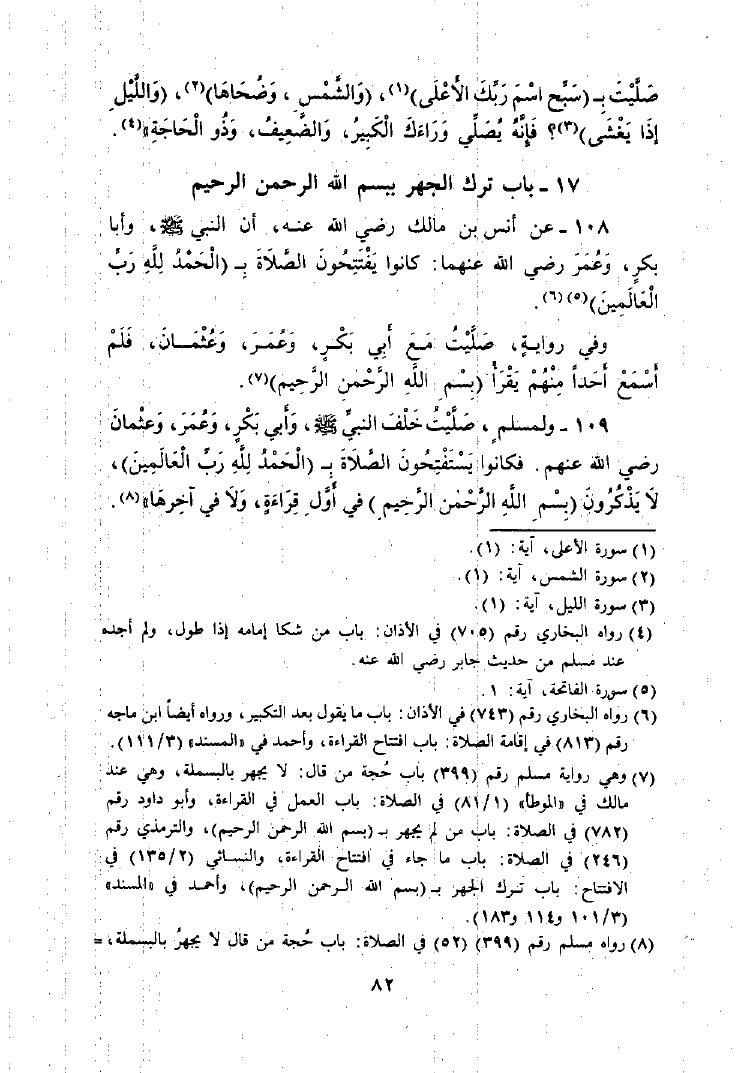 صَلَّيْتَ بِـ (سَبِّحِ اسْمَ رَبِّكَ الأَعْلَى)(١)، (وَالشَّمْسِ، وَضُحَاهَا)(٢)، (وَاللَّيْلِ
إِذَا يَغْشَى)(٣)؟ فَإِنَّهُ يُصَلِّي وَرَاءَكَ الْكَبِيرُ، وَالضَّعِيفُ، وَذُو الْحَاجَةِ»(٤).
١٧ - باب ترك الجهر ببسم الله الرحمن الرحيم
١٠٨ - عن أنس بن مالك رضي الله عنه، أن النبي ﷺ، وأبا
بكرٍ، وَعُمَرَ رضي الله عنهما: كانوا يَفْتَتِحُونَ الصَّلَاةَ بِـ (الْحَمْدُ لِلَّهِ رَبِّ
الْعَالَمِينَ)(٥)(٦).
وفي روايةٍ، صَلَّيْتُ مَعَ أَبِي بَكْرٍ، وَعُمَرَ، وَعُثْمَانَ، فَلَمْ
أَسْمَعْ أَحَداً مِنْهُمْ يَقْرَأُ (بِسْمِ اللَّهِ الرَّحْمٰنِ الرَّحِيمِ)(٧).
١٠٩ - ولمسلمٍ، صَلَّيْتُ خَلْفَ النبيِّ ﷺ، وَأَبي بَكْرٍ، وَعُمَرَ، وَعثْمانَ
رضي الله عنهم. فكانوا يَسْتَفْتِحُونَ الصَّلَاةَ بِـ (الْحَمْدُ لِلَّهِ رَبِّ الْعَالَمِينَ)،
لَا يَذْكُرُونَ (بِسْمِ اللَّهِ الرَّحْمٰنِ الرَّحِيمِ) في أَوَّلِ قِرَاءَةٍ، وَلَا في آخِرِهَا»(٨).
(١) سورة الأعلى، آية: (١).
(٢) سورة الشمس، آية: (١).
(٣) سورة الليل، آية: (١).
(٤) رواه البخاري رقم (٧٠٥) في الأذان: باب من شكا إمامه إذا طول، ولم أجده
عند مسلم من حديث جابر رضي الله عنه.
(٥) سورة الفاتحة، آية: ١.
(٦) رواه البخاري رقم (٧٤٣) في الأذان: باب ما يقول بعد التكبير، ورواه أيضاً ابن ماجه
رقم (٨١٣) في إقامة الصلاة: باب افتتاح القراءة، وأحمد في «المسند» (٣/١١١).
(٧) وهي رواية مسلم رقم (٣٩٩) باب حُجة من قال: لا يجهر بالبسملة، وهي عند
مالك في «الموطأ» (١/٨١) في الصلاة: باب العمل في القراءة، وأبو داود رقم
(٧٨٢) في الصلاة: باب من لم يجهر بـ (بسم الله الرحمن الرحيم)، والترمذي رقم
(٢٤٦) في الصلاة: باب ما جاء في افتتاح القراءة، والنسائي (٢/١٣٥) في
الافتتاح: باب ترك الجهر بـ (بسم الله الرحمن الرحيم)، وأحمد في «المسند»
(٣/١٠١ و١١٤ و١٨٣).
(٨) رواه مسلم رقم (٣٩٩) (٥٢) في الصلاة: باب حُجة من قال لا يجهرُ بالبسملة، =
٨٢